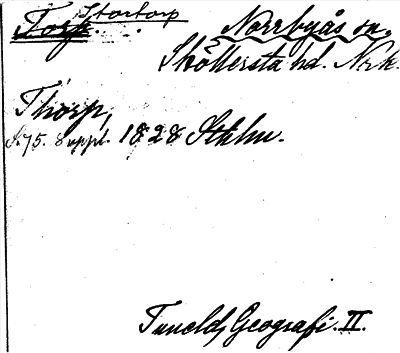 Stortorp
Torp. Norrbyås sn.
Sköllersta hd. Nrk.
Thorp,
S. 75. 8 uppl. 1828 Sthlm.
Tunelds Geografi. II.